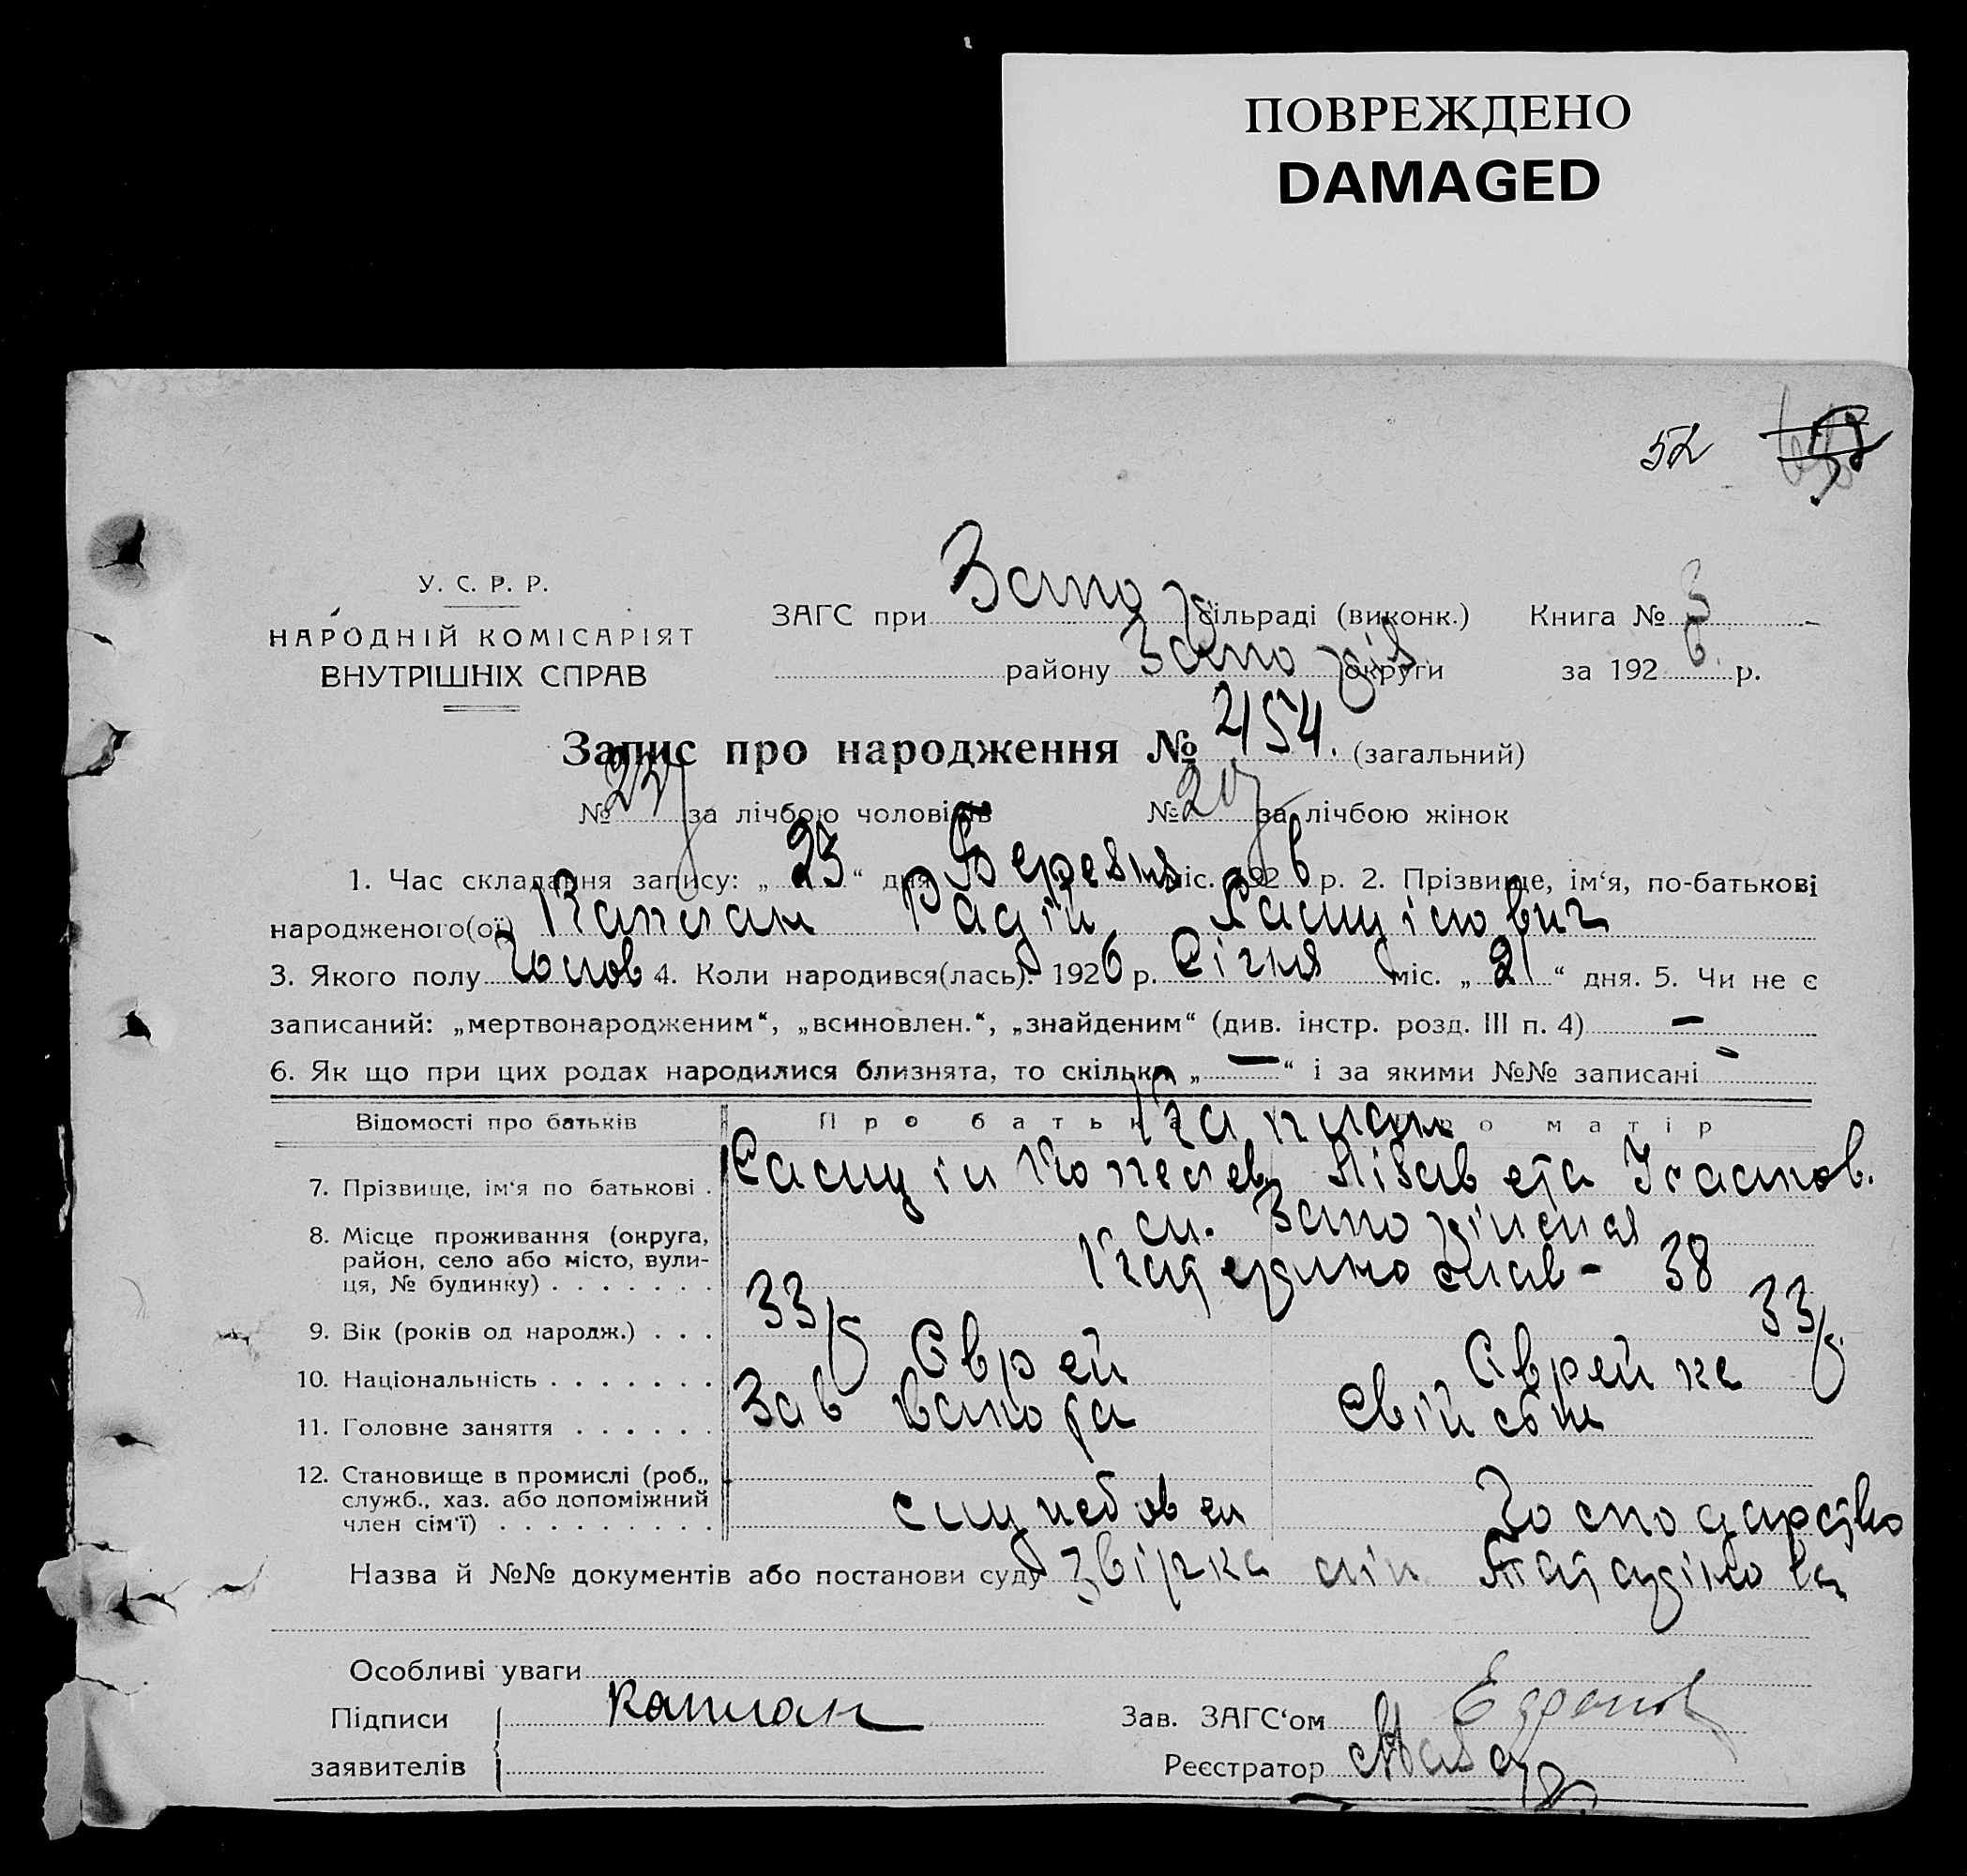 ПОВРЕЖДЕНО
DAMAGED
52
У. С. Р. Р.
НАРОДНІЙ КОМІСАРІЯТ
ВНУТРІШНІХ СПРАВ
ЗАГС при Запо сільраді (виконк.) Книга № 3
району Запоріз округи за 1926 р.
Запис про народження № 454. (загальний)
№ за лічбою чоловіків № 207 за лічбою жінок
1. Час складання запису: „ 23 “ дня Березня міс. 1926 р. 2. Прізвище, ім‘я, по-батькові
народженого(ої) Каплан Радій Самуілович
3. Якого полу Чолов 4. Коли народився(лась): 1926 р. Січня міс. „ 21 “ дня. 5. Чи не є
записаний: „мертвонародженим“, „всиновлен.“, „знайденим“ (див. інстр. розд. III п. 4) —
6. Як що при цих родах народилися близнята, то скільки „ — “ і за якими №№ записані —
Відомості про батьків Про батька Про матір
Каплан
7. Прізвище, ім‘я по батькові . Самуіл Копелев Лізавета Ісааков.
8. Місце проживання (округа, район, село або місто, вулиця, № будинку) . . . . . . . м. Запоріжжя
Катеринослав - 38
9. Вік (років од народж.) . . . 33 33
10. Національність . . . . . . . Єврей Єврейка
11. Головне заняття . . . . . . Зав Свійськ
12. Становище в промислі (роб., служб., хаз. або допоміжний член сім‘ї) . . . . . . . . . службовец Господарство
Назва й №№ документів або постанови суду Звірка
Особливі уваги
Підписи Каплан Зав. ЗАГС‘ом
заявителів Реєстратор